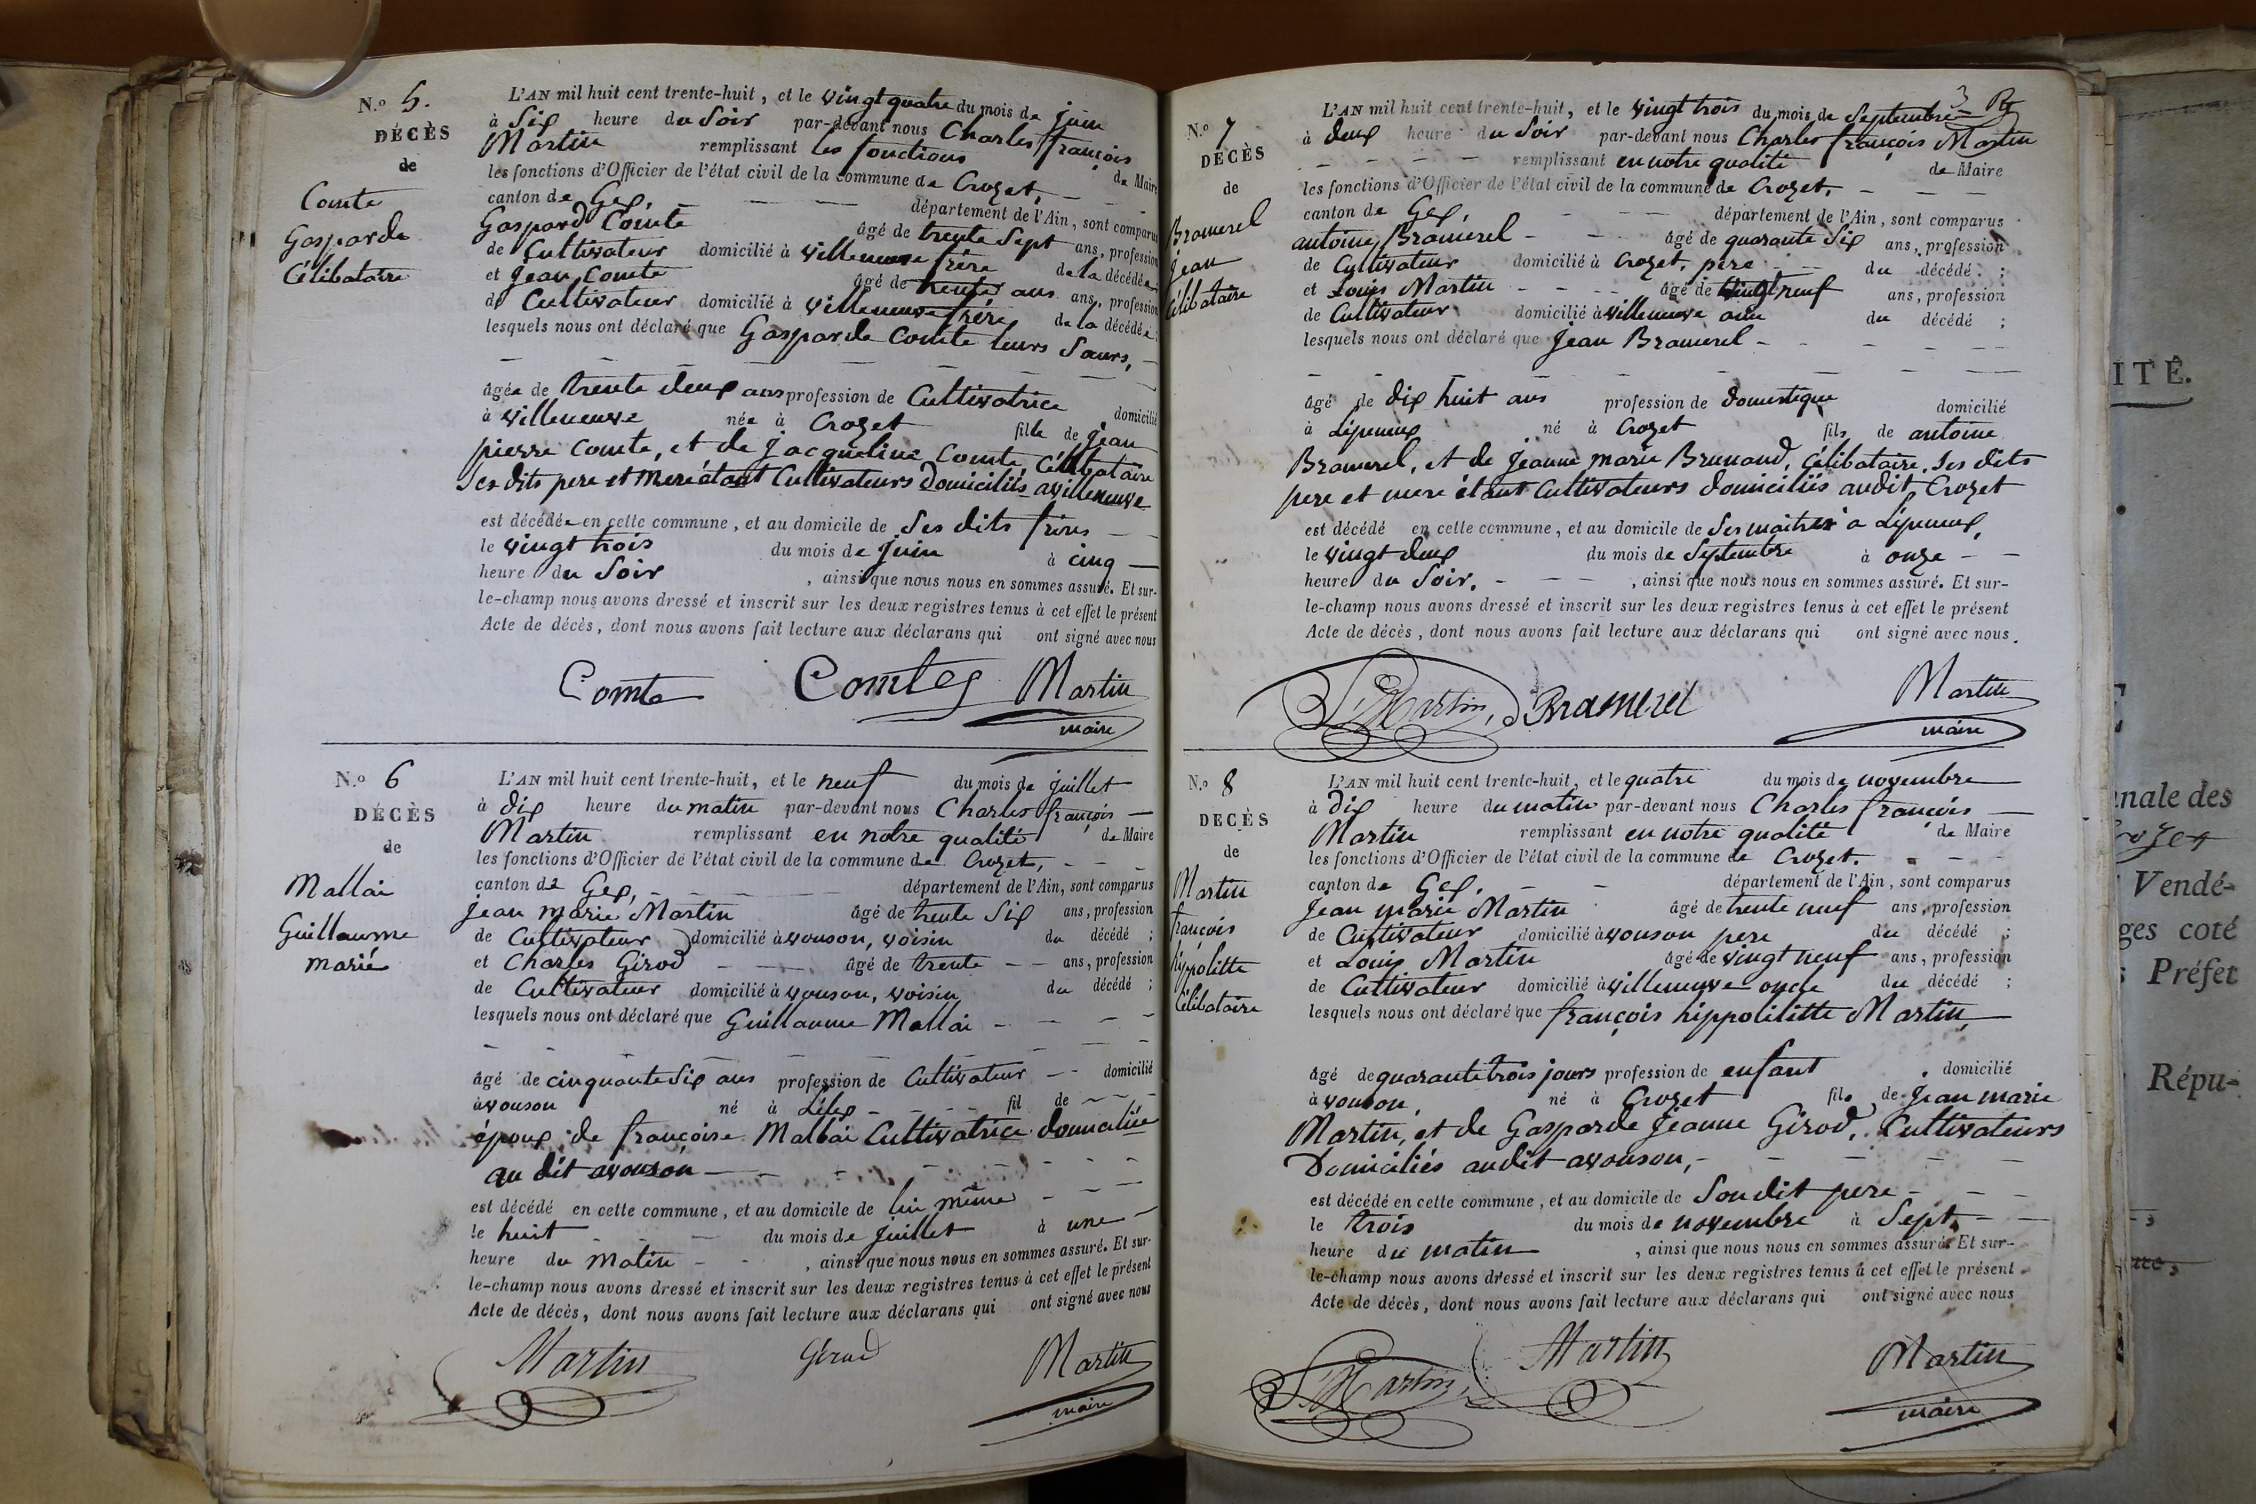 N.º 5.
DÉCÈS
de
Comte
Gasparde
Célibataire
L'AN mil huit cent trente-huit, et le vingt quatre du mois de juin
à Six heure du Soir par-devant nous Charles françois
Martin remplissant les fonctions de Maire
les fonctions d'Officier de l'état civil de la commune de Crozet,
canton de Gex, département de l'Ain, sont comparus
Gaspard Comte âgé de trente Sept ans, profession
de Cultivateur domicilié à villeneuve frère de la décédée
et Jean Comte âgé de trente ans ans, profession
de Cultivateur domicilié à villeneuve frère de la décédée;
lesquels nous ont déclaré que Gasparde Comte leurs Sœurs,
âgée de trente deux ans profession de Cultivatrice domicilié
à villeneuve née à Crozet fille de Jean
pierre Comte, et de Jacqueline Comte, Célibataire
Ses dits pere et Mere étant Cultivateurs Domiciliés a villeneuve
est décédée en cette commune, et au domicile de Ses dits frères
le vingt trois du mois de juin à cinq
heure du Soir, ainsi que nous nous en sommes assuré. Et sur-
le-champ nous avons dressé et inscrit sur les deux registres tenus à cet effet le présent
Acte de décès, dont nous avons fait lecture aux déclarans qui ont signé avec nous
Comte Comte Martin
maire
N.º 6
DÉCÈS
de
Mallai
Guillaume
marié
L'AN mil huit cent trente-huit, et le neuf du mois de juillet
à dix heure du matin par-devant nous Charles françois
Martin remplissant en notre qualité de Maire
les fonctions d'Officier de l'état civil de la commune de Crozet,
canton de Gex, département de l'Ain, sont comparus
Jean marie Martin âgé de trente Six ans, profession
de Cultivateur domicilié à avouson, voisin du décédé;
et Charles Girod âgé de trente ans, profession
de Cultivateur domicilié à avouson, voisin du décédé;
lesquels nous ont déclaré que Guillaume Mallai
âgé de cinquante Six ans profession de Cultivateur domicilié
à avouson né à Lélex fil de
époux de françoise Mallai Cultivatrice domiciliée
au dit avouson
est décédé en cette commune, et au domicile de lui même
le huit du mois de juillet à une
heure du matin, ainsi que nous nous en sommes assuré. Et sur-
le-champ nous avons dressé et inscrit sur les deux registres tenus à cet effet le présent
Acte de décès, dont nous avons fait lecture aux déclarans qui ont signé avec nous
Martin Girod Martin
maire
3
N.º 7
DÉCÈS
de
Bramerel
Jean
Célibataire
L'AN mil huit cent trente-huit, et le vingt trois du mois de Septembre
à deux heure du Soir par-devant nous Charles françois Martin
remplissant en notre qualité de Maire
les fonctions d'Officier de l'état civil de la commune de Crozet,
canton de Gex, département de l'Ain, sont comparus
antoine Bramerel âgé de quarante Six ans, profession
de Cultivateur domicilié à Crozet, père du décédé;
et Louis Martin âgé de vingt neuf ans, profession
de Cultivateur domicilié à villeneuve ami du décédé;
lesquels nous ont déclaré que Jean Bramerel
âgé de dix huit ans profession de domestique domicilié
à Lépeneux né à Crozet fils de antoine
Bramerel, et de Jeanne marie Brunand, Célibataire, Ses dits
pere et mere étant Cultivateurs domiciliés audit Crozet
est décédé en cette commune, et au domicile de Ses maitres à Lépeneux,
le vingt deux du mois de Septembre à onze
heure du Soir, ainsi que nous nous en sommes assuré. Et sur-
le-champ nous avons dressé et inscrit sur les deux registres tenus à cet effet le présent
Acte de décès, dont nous avons fait lecture aux déclarans qui ont signé avec nous.
Ls Martin, Bramerel Martin
maire
N.º 8
DECÈS
de
Martin
françois
hippolitte
Célibataire
L'AN mil huit cent trente-huit, et le quatre du mois de novembre
à dix heure du matin par-devant nous Charles françois
Martin remplissant en notre qualité de Maire
les fonctions d'Officier de l'état civil de la commune de Crozet.
canton de Gex, département de l'Ain, sont comparus
Jean marie Martin âgé de trente neuf ans, profession
de Cultivateur domicilié à avouson pere du décédé;
et Louis Martin âgé de vingt neuf ans, profession
de Cultivateur domicilié à villeneuve oncle du décédé;
lesquels nous ont déclaré que françois hippolilitte Martin,
âgé de quarante trois jours profession de enfant domicilié
à avouson, né à Crozet fils de Jean marie
Martin, et de Gasparde Jeanne Girod, Cultivateurs
Domiciliés audit avouson,
est décédé en cette commune, et au domicile de Son dit pere
le trois du mois de novembre à Sept
heure du matin, ainsi que nous nous en sommes assuré. Et sur-
le-champ nous avons dressé et inscrit sur les deux registres tenus à cet effet le présent
Acte de décès, dont nous avons fait lecture aux déclarans qui ont signé avec nous
Ls Martin, Martin Martin
maire
ITÉ.
nale des
Vendé-
ges coté
Préfet
Répu-